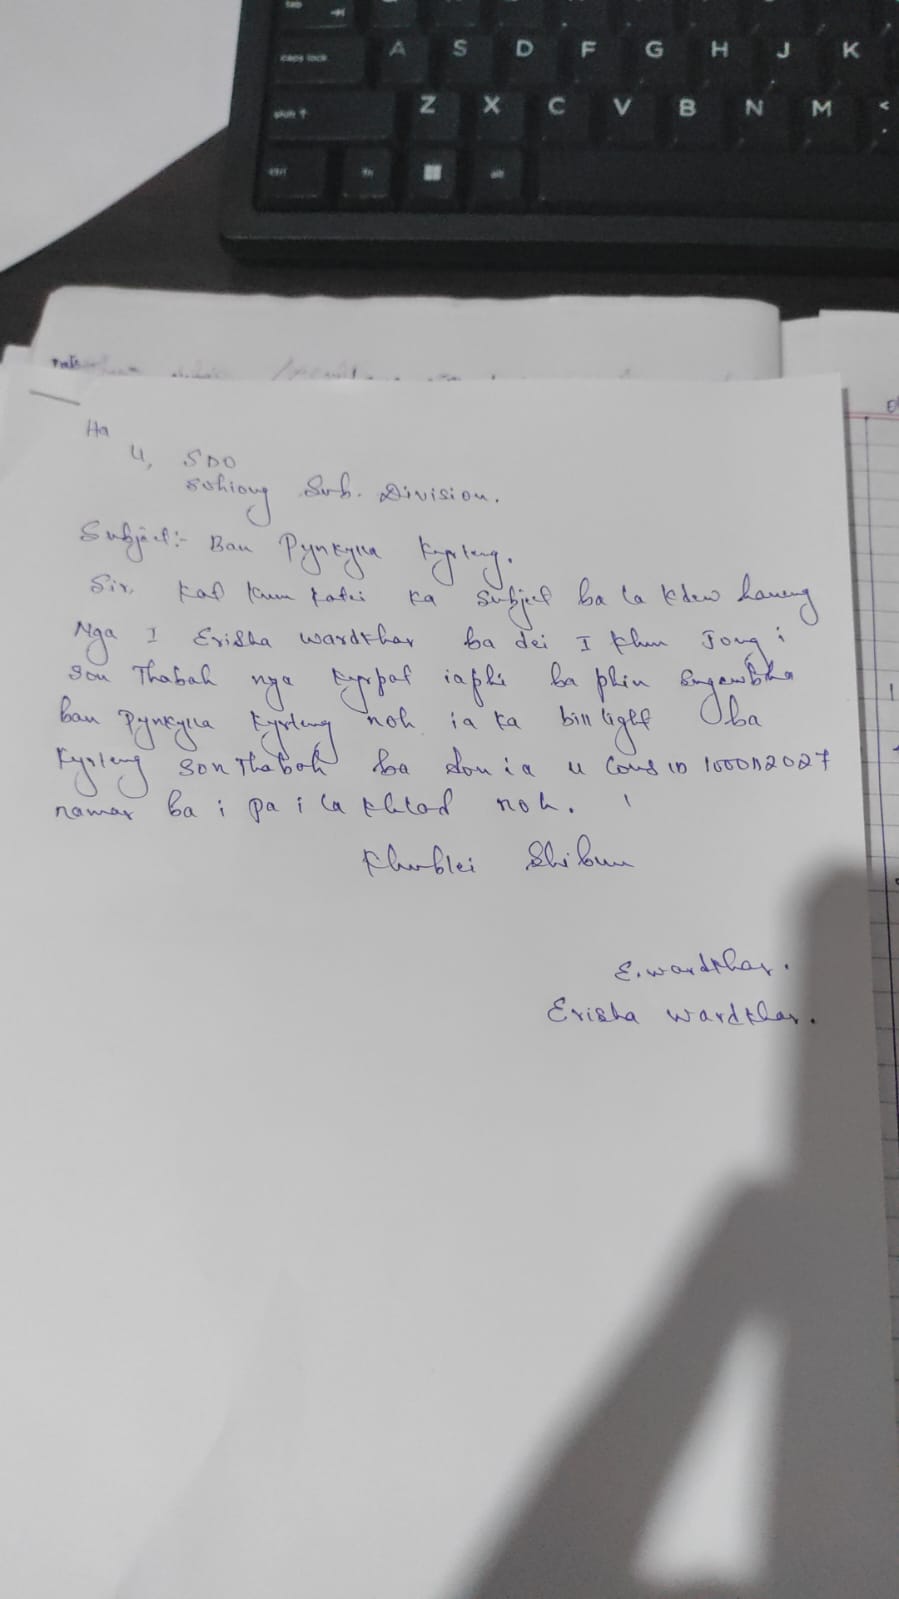 Ha
U, SDO
Sohiong Sub. Division.
Subject:- Ban Pynkylla Kyrteng.
Sir, Kat kum katei ka subject ba la kdew haneng
Nga I Erisha Wardkhar ba dei I khun jong i
Son Thabah nga kyrpad iaphi ba phin sngewbha
ban Pynkylla Kyrteng noh ia ka bill light ba
Kyrteng Son Thabah ba don ia u Cons ID
namar ba i pa i la khlad noh.
Khublei Shibun
E. Wardkhar.
Erisha Wardkhar.
tab
caps lock A S D F G H J K
shift Z X C V B N M <
ctrl fn alt